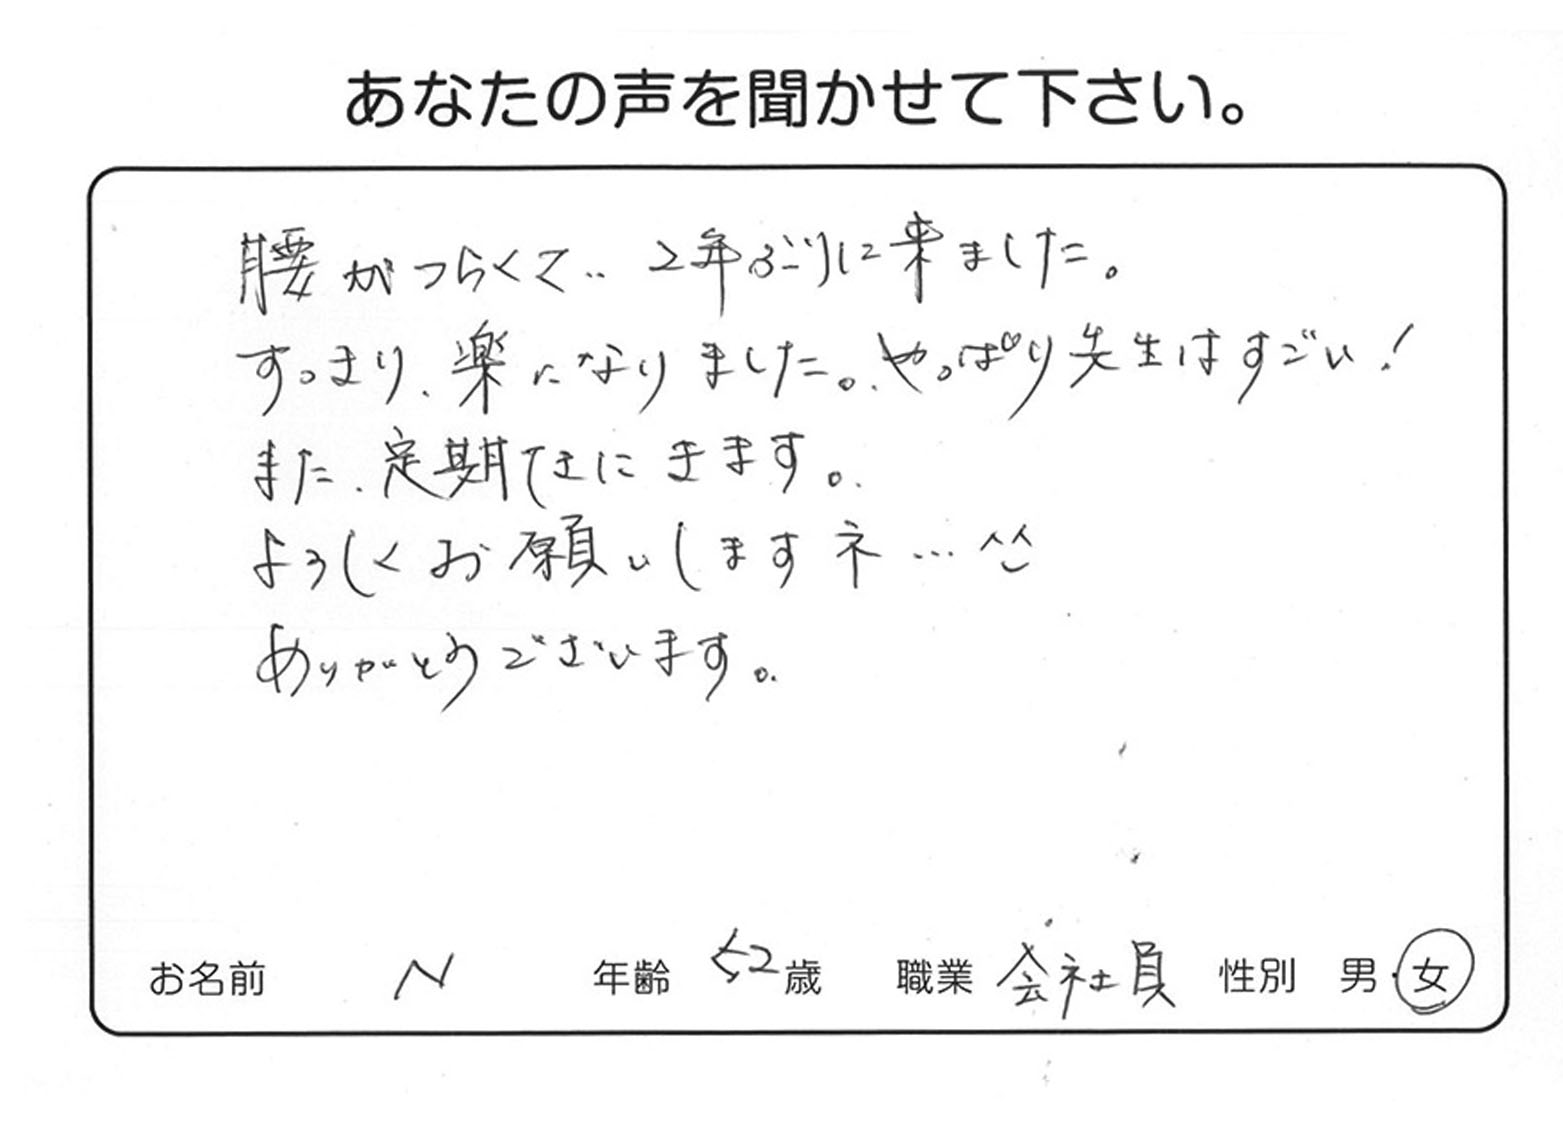 あなたの声を聞かせて下さい。
腰がつらくて‥2年ぶりに来ました。
すっきり、楽になりました。やっぱり先生はすごい！
また、定期てきにきます。
よろしくお願いしますネ…^^
ありがとうございます。
お名前 N 年齢 52歳 職業 会社員 性別 男・女